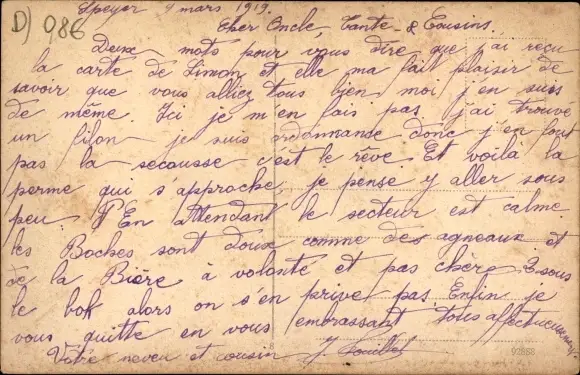 D) 986
Speyer 9 mars 1919.
Cher Oncle, Tante & Cousins.
Deux mots pour vous dire que j'ai reçu
la carte de Simon et elle ma fait plaisir de
savoir que vous alliez tous bien moi j'en suis
de même. Ici je m'en fais pas j'ai trouvé
un filon je suis ordonnance donc j'en fout
pas la secousse c'est le rêve. Et voilà la
perme qui s'approche, je pense y aller sous
peu. En attendant le secteur est calme
les Boches sont doux comme des agneaux et
de la Bière à volonté et pas chère 3 sous
le bok alors on s'en prive pas Enfin je
vous quitte en vous embrassant tous affectueusement.
Votre neveu et cousin J.